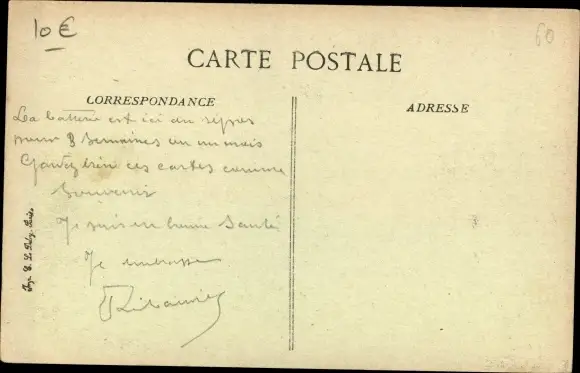 10 €
60
CARTE POSTALE
CORRESPONDANCE
ADRESSE
La batterie est ici au repos
pour 3 semaines ou un mois
Gardez bien ces cartes comme
Souvenir
Je suis en bonne Santé
Je embrasse
Imp. E. Le Deley, Paris